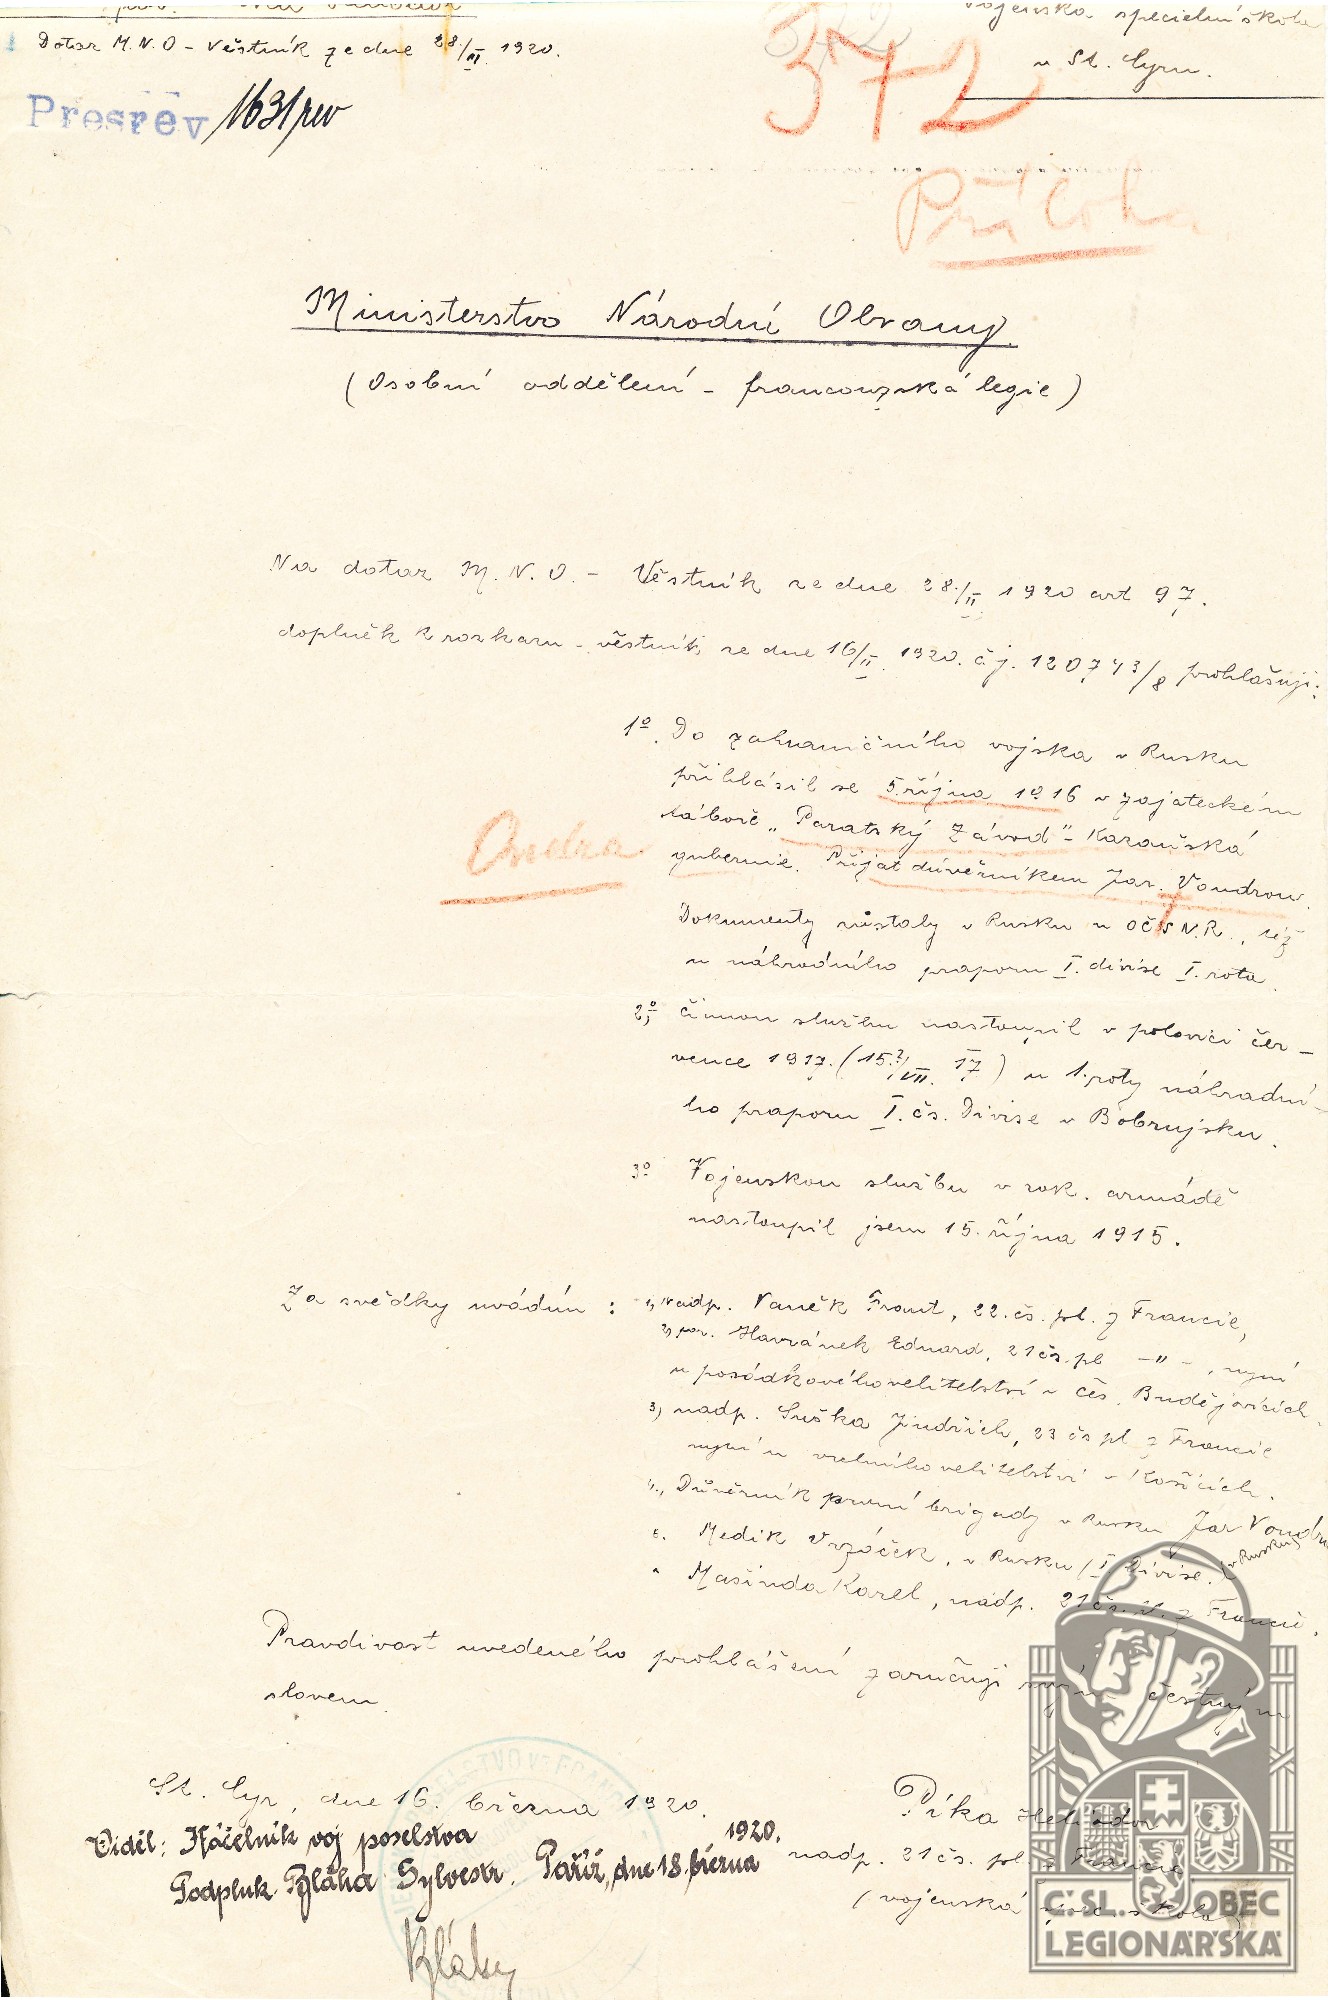 Vojenská specielní škola
v St. Cyru.
Dotaz M.N.O – Věstník ze dne 28./III. 1920.
372
372
Presrev 1631/rev
Příloha
Ministerstvo Národní Obrany.
(Osobní oddělení – francouzská legie)
Na dotaz M.N.O. – Věstník ze dne 28./II 1920 art 97.
doplněk k rozkazu – věstník ze dne 16/II. 1920. č.j. 120743/8 prohlašuji:
1º. Do zahraničního vojska v Rusku
přihlásil se 5. října 1916 v zajateckém
táboře „Paratský Závod" – Kazaňská
gubernie. Přijat důvěrníkem Jar. Voudrou.
Dokumenty zůstaly v Rusku u OČSN.R., též
u náhradního praporu I. divise I. rota.
2º, činnou službu nastoupil v polovici čer-
vence 1917. (15?/VII. 17) u 1. roty náhradní-
ho praporu I. čs. Divise v Bobrujsku.
3º Vojenskou službu v rak. armádě
nastoupil jsem 15. října 1915.
Za svědky uvádím: 1, Nadp. Vaněk Frant, 22. čs. pl. z Francie,
2, por. Havránek Eduard, 21 čs. pl –"–, nyní
u posádkového velitelství v Čes. Budějovicích.
3, nadp. Suška Jindřich, 23 čs pl z Francie
nyní u velitelství v Košicích.
4., Důvěrník první brigády v Rusku Jar Voudr
5. Medik Vrzáček, v Rusku / I Divise. (v Rusku)
" Mašinda Karel, nadp. 21 čs. pl. z Francie.
Pravdivost uvedeného prohlášení zaručuji svým čestným
slovem.
St. Cyr, dne 16. března 1920.
Viděl: Náčelník voj poselstva
Podpluk. Bláha Sylvestr. Paříž, dne 18. března 1920.
Bláha
Píka Heliodor
nadp. 21 čs. pl. z Francie
(vojenská spec. škola)
Č.SL. OBEC
LEGIONÁŘSKÁ